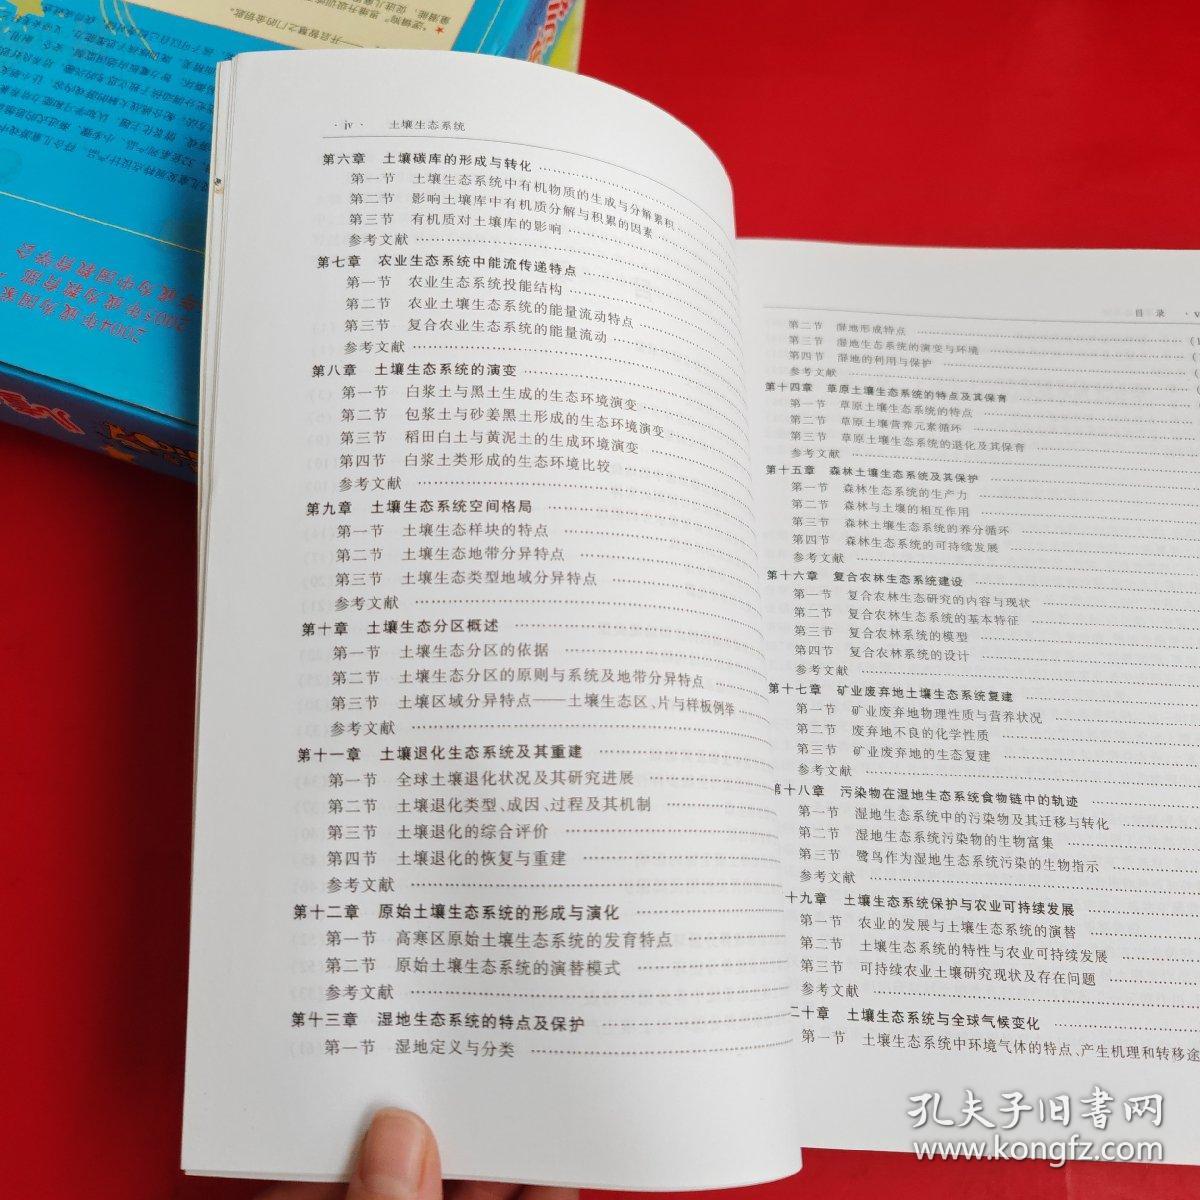 · iv ·　土壤生态系统
第六章　土壤碳库的形成与转化
第一节　土壤生态系统中有机物质的生成与分解累积
第二节　影响土壤库中有机质分解与积累的因素
第三节　有机质对土壤库的影响
参考文献
第七章　农业生态系统中能流传递特点
第一节　农业生态系统投能结构
第二节　农业土壤生态系统的能量流动特点
第三节　复合农业生态系统的能量流动
参考文献
第八章　土壤生态系统的演变
第一节　白浆土与黑土生成的生态环境演变
第二节　包浆土与砂姜黑土形成的生态环境演变
第三节　稻田白土与黄泥土的生成环境演变
第四节　白浆土类形成的生态环境比较
参考文献
第九章　土壤生态系统空间格局
第一节　土壤生态样块的特点
第二节　土壤生态地带分异特点
第三节　土壤生态类型地域分异特点
参考文献
第十章　土壤生态分区概述
第一节　土壤生态分区的依据
第二节　土壤生态分区的原则与系统及地带分异特点
第三节　土壤区域分异特点——土壤生态区、片与样板例举
参考文献
第十一章　土壤退化生态系统及其重建
第一节　全球土壤退化状况及其研究进展
第二节　土壤退化类型、成因、过程及其机制
第三节　土壤退化的综合评价
第四节　土壤退化的恢复与重建
参考文献
第十二章　原始土壤生态系统的形成与演化
第一节　高寒区原始土壤生态系统的发育特点
第二节　原始土壤生态系统的演替模式
参考文献
第十三章　湿地生态系统的特点及保护
第一节　湿地定义与分类
目录　· v
第二节　湿地形成特点
第三节　湿地生态系统的演变与环境
第四节　湿地的利用与保护
参考文献
第十四章　草原土壤生态系统的特点及其保育
第一节　草原土壤生态系统的特点
第二节　草原土壤营养元素循环
第三节　草原土壤生态系统的退化及其保育
参考文献
第十五章　森林土壤生态系统及其保护
第一节　森林生态系统的生产力
第二节　森林与土壤的相互作用
第三节　森林土壤生态系统的养分循环
第四节　森林生态系统的可持续发展
参考文献
第十六章　复合农林生态系统建设
第一节　复合农林生态研究的内容与现状
第二节　复合农林生态系统的基本特征
第三节　复合农林系统的模型
第四节　复合农林系统的设计
参考文献
第十七章　矿业废弃地土壤生态系统复建
第一节　矿业废弃地物理性质与营养状况
第二节　废弃地不良的化学性质
第三节　矿业废弃地的生态复建
参考文献
第十八章　污染物在湿地生态系统食物链中的轨迹
第一节　湿地生态系统中的污染物及其迁移与转化
第二节　湿地生态系统污染物的生物富集
第三节　鹭鸟作为湿地生态系统污染的生物指示
参考文献
十九章　土壤生态系统保护与农业可持续发展
第一节　农业的发展与土壤生态系统的演替
第二节　土壤生态系统的特性与农业可持续发展
第三节　可持续农业土壤研究现状及存在问题
参考文献
二十章　土壤生态系统与全球气候变化
第一节　土壤生态系统中环境气体的特点、产生机理和转移途
孔夫子旧书网
www.kongfz.com